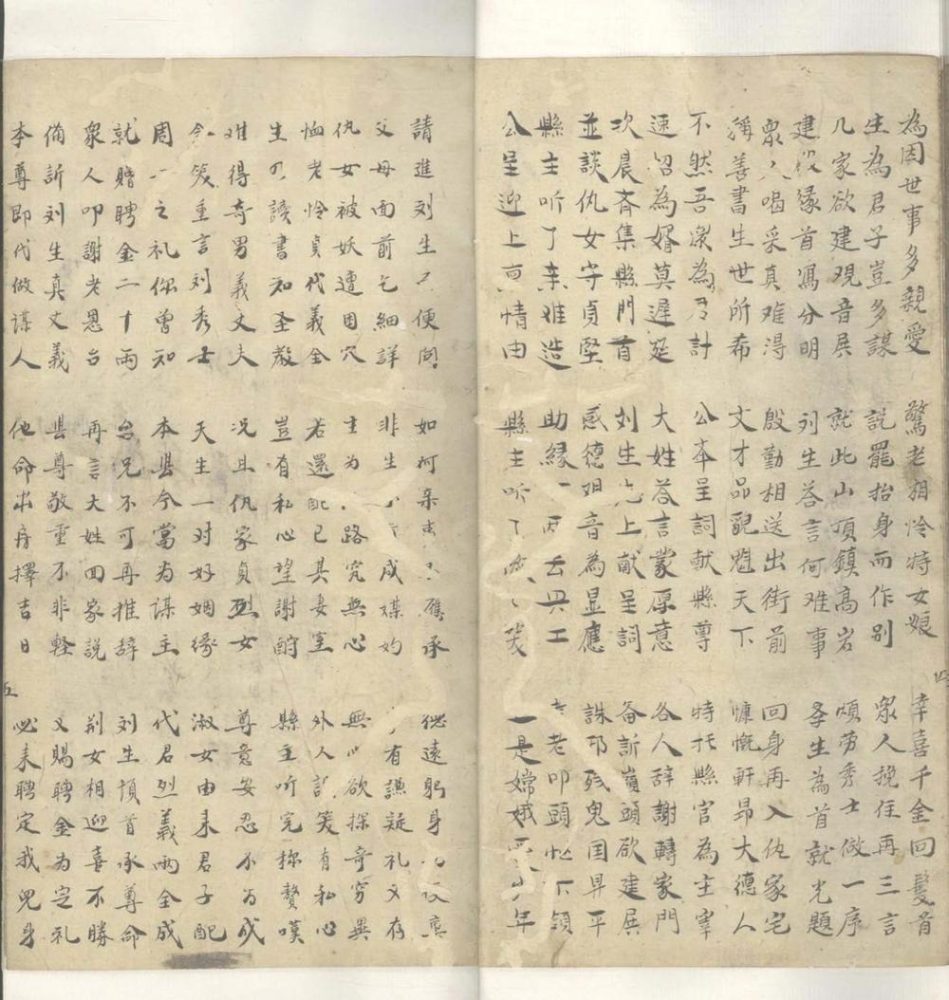 為因世事多親愛 驚老相怜特女娘 幸喜千金回髮首
生為君子豈多謀 説罷抬身而作別 眾人挽住再三言
几家欲建观音展 就此山頂鎮高岩 煩劳秀士做一序
建設緣首寫分明 刘生荅言何难事 生為首就先題
眾人喝采真难得 殷勤相送出街前 回身再入仇家宅
稱善書生世所希 文才品貌魁天下 慷慨軒昂大德人
不然吾深為計 公本呈詞献縣尊 特托縣官為主宰
速招為婿莫遲延 大姓荅言蒙厚意 各人辞謝轉家門
次晨斉集縣門首 刘生先上献呈詞 备訴嵐頭欲建展
並談仇女守貞堅 感德观音為显應 誅邪鬼国早平
縣主听了亲难造 助緣一両去兴工 老叩頭忙下領
公呈迎上情由 縣主听了 一是嫦娥年
四
請進刘生便問 如何應承 躬身
父母面前乞細詳 非生成媒妁 有謙疑礼又存
仇女被妖遭困穴 主为路究無心 無欲探奇穷異
恤老怜貞代義全 若還配已其妻室 外人訕笑有私心
生讀書知圣教 豈有私心望謝酧 縣主听完称贊嘆
难得奇男義丈夫 况且仇家貞烈女 尊意安忍不为成
今笑重言刘秀士 天生一对好姻缘 淑女由来君子配
周之礼你曾知 本县今當为媒主 代君烈義両全成
就贈聘金二十両 台兄不可再推辞 刘生頃首承尊命
眾人叩謝老恩台 再言大姓回家説 荊女相迎喜不勝
備訴刘生真丈義 县尊敬重不非輕 又賜聘金为定礼
本尊即代做媒人 他命出府擇吉日 必来聘定我兒身
五